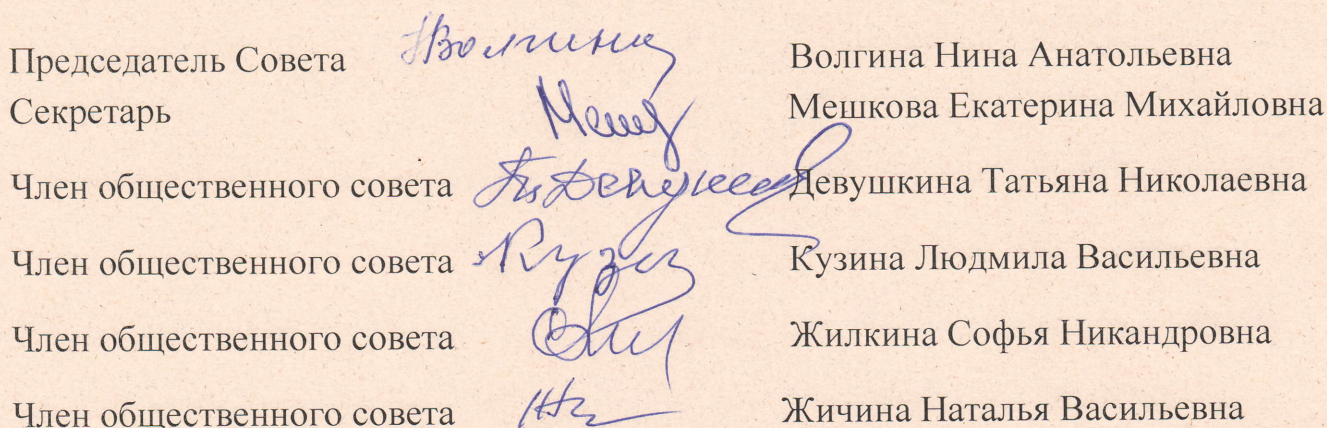 Председатель Совета Волгина Волгина Нина Анатольевна
Секретарь Меш Мешкова Екатерина Михайловна
Член общественного совета Девушкина Татьяна Николаевна
Член общественного совета Кузи Кузина Людмила Васильевна
Член общественного совета Жилкина Софья Никандровна
Член общественного совета Жичина Наталья Васильевна